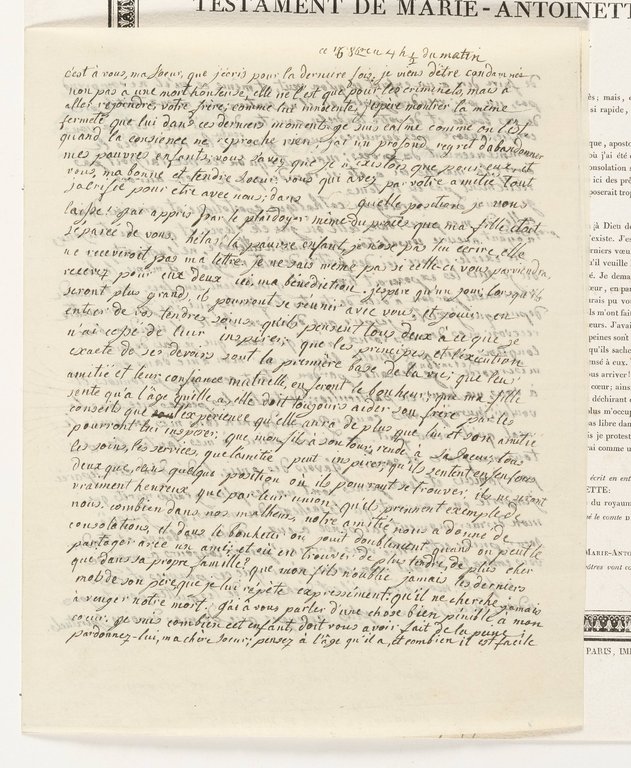 TESTAMENT DE MARIE-ANTOINETT
ce 16 8bre a 4 h ½ du matin
c'est à vous, ma Soeur, que j'écris pour la derniere fois, je viens d'être condamnée
non pas a une mort honteuse, elle ne l'est que pour les criminels, mais à
aller rejoindre votre frère, comme lui innocente, j'espère montrer la même
fermeté que lui dans ces derniers moments. je suis calme comme on l'est
quand la consience ne reproche rien. j'ai un profond regret d'abandonner
mes pauvres enfants; vous savez que je n'existois que pour eux, et
vous, ma bonne et tendre Soeur, vous qui avez par votre amitié tout
sacrifié pour etre avec nous; dans quelle position je vous
laisse! j'ai appris par le plaidoyer même du procès que ma fille étoit
séparée de vous, hélas! la pauvre enfant, je n'ose pas lui écrire, elle
ne receveroit pas ma lettre. je ne sais même pas si celle-ci vous parviendra,
recevez pour eux deux ici, ma bénédiction. j'espère qu'un jour, lorsqu'ils
seront plus grand, ils pourront se réunir avec vous, et jouir en
entier de vos tendres soins. qu'ils pensent tous deux à ce que je
n'ai cessé de leur inspirer, que les principes, et l'exécution
exacte de ses devoirs sont la première base de la vie; que leur
amitié et leur confiance mutuelle, en feront le bonheur; que ma fille
sente qu'à l'âge qu'elle a, elle doit toujours aider son frère par les
conseils que l'expérience qu'elle aura de plus que lui et son amitié
pourront lui inspirer; que mon fils à son tour, rende à sa Soeur, tous
les soins, les services, que l'amitié peut inspirer; qu'ils sentent enfin tous
deux que, dans quelque position où ils pourront se trouver, ils ne seront
vraiment heureux que par leur union. qu'ils prennent exemple de
nous, combien dans nos malheurs, notre amitié nous a donné de
consolations, et dans le bonheur on jouit doublement quand on peut le
partager avec un ami; et où en trouver de plus tendre, de plus cher
que dans sa propre famille? que mon fils n'oublie jamais les derniers
mots de son père, que je lui répète expressément: qu'il ne cherche jamais
à venger notre mort. j'ai à vous parler d'une chose bien pénible à mon
coeur. je sais combien cet enfant, doit vous avoir fait de la peine;
pardonnez-lui, ma chère Soeur; pensez à l'âge qu'il a, et combien il est facile
PARIS, IM